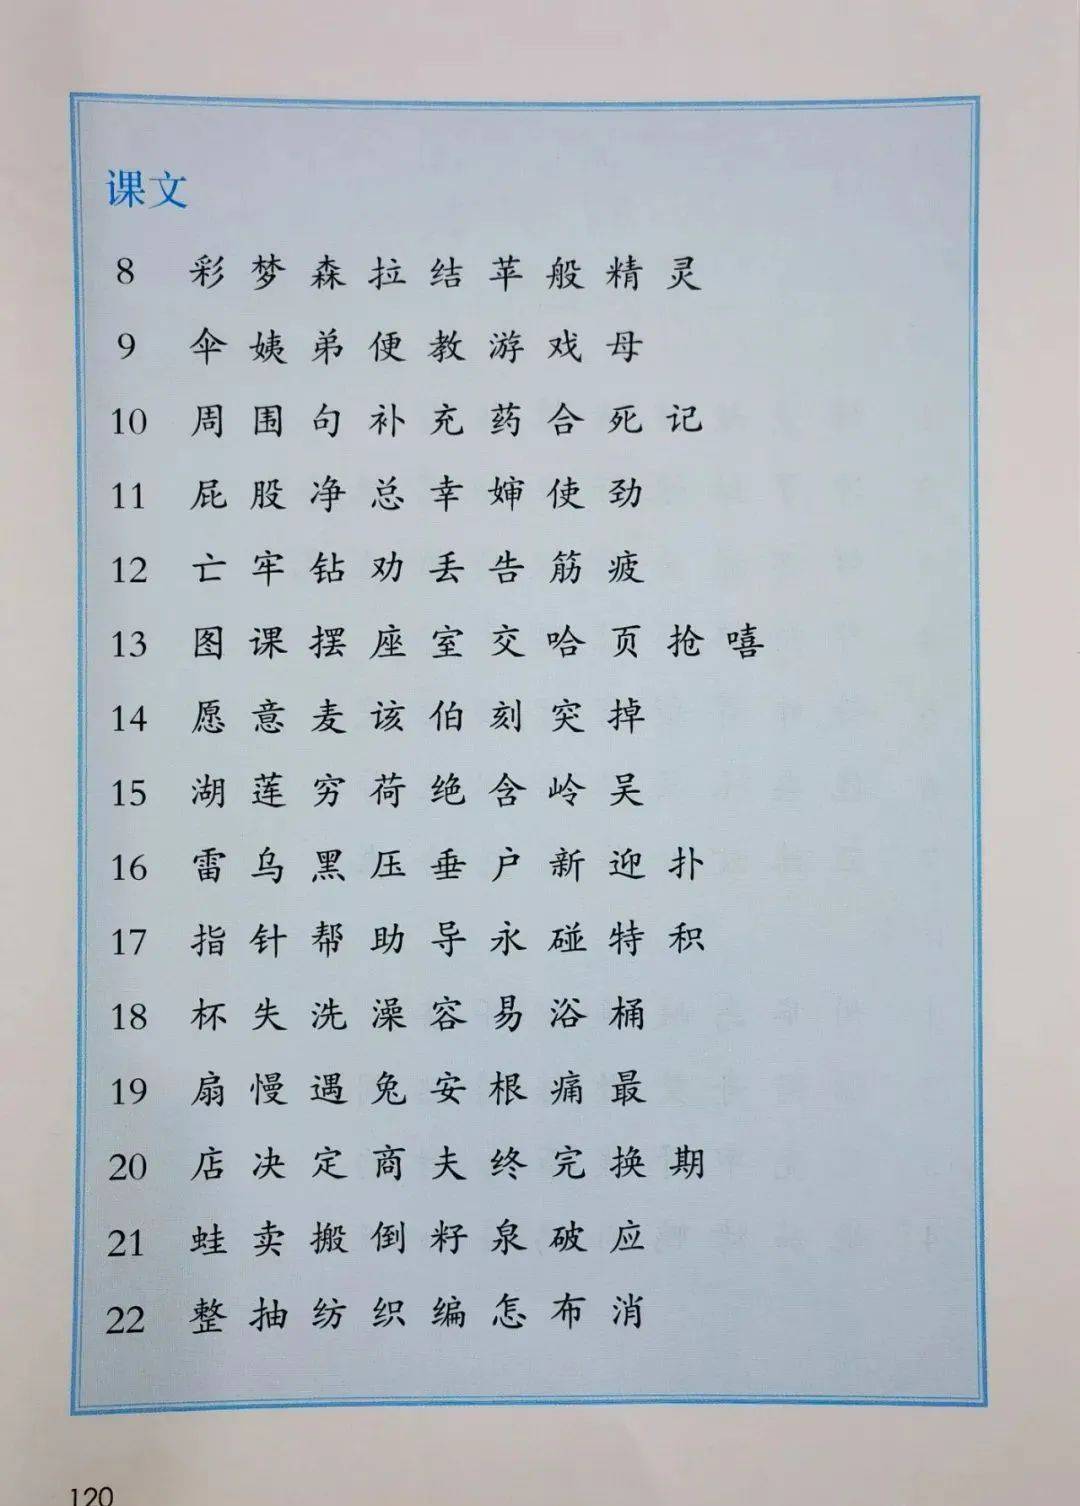 课文
8 彩 梦 森 拉 结 苹 般 精 灵
9 伞 姨 弟 便 教 游 戏 母
10 周 围 句 补 充 药 合 死 记
11 屁 股 净 总 幸 婶 使 劲
12 亡 牢 钻 劝 丢 告 筋 疲
13 图 课 摆 座 室 交 哈 页 抢 嘻
14 愿 意 麦 该 伯 刻 突 掉
15 湖 莲 穷 荷 绝 含 岭 吴
16 雷 乌 黑 压 垂 户 新 迎 扑
17 指 针 帮 助 导 永 碰 特 积
18 杯 失 洗 澡 容 易 浴 桶
19 扇 慢 遇 兔 安 根 痛 最
20 店 决 定 商 夫 终 完 换 期
21 蛙 卖 搬 倒 籽 泉 破 应
22 整 抽 纺 织 编 怎 布 消
120